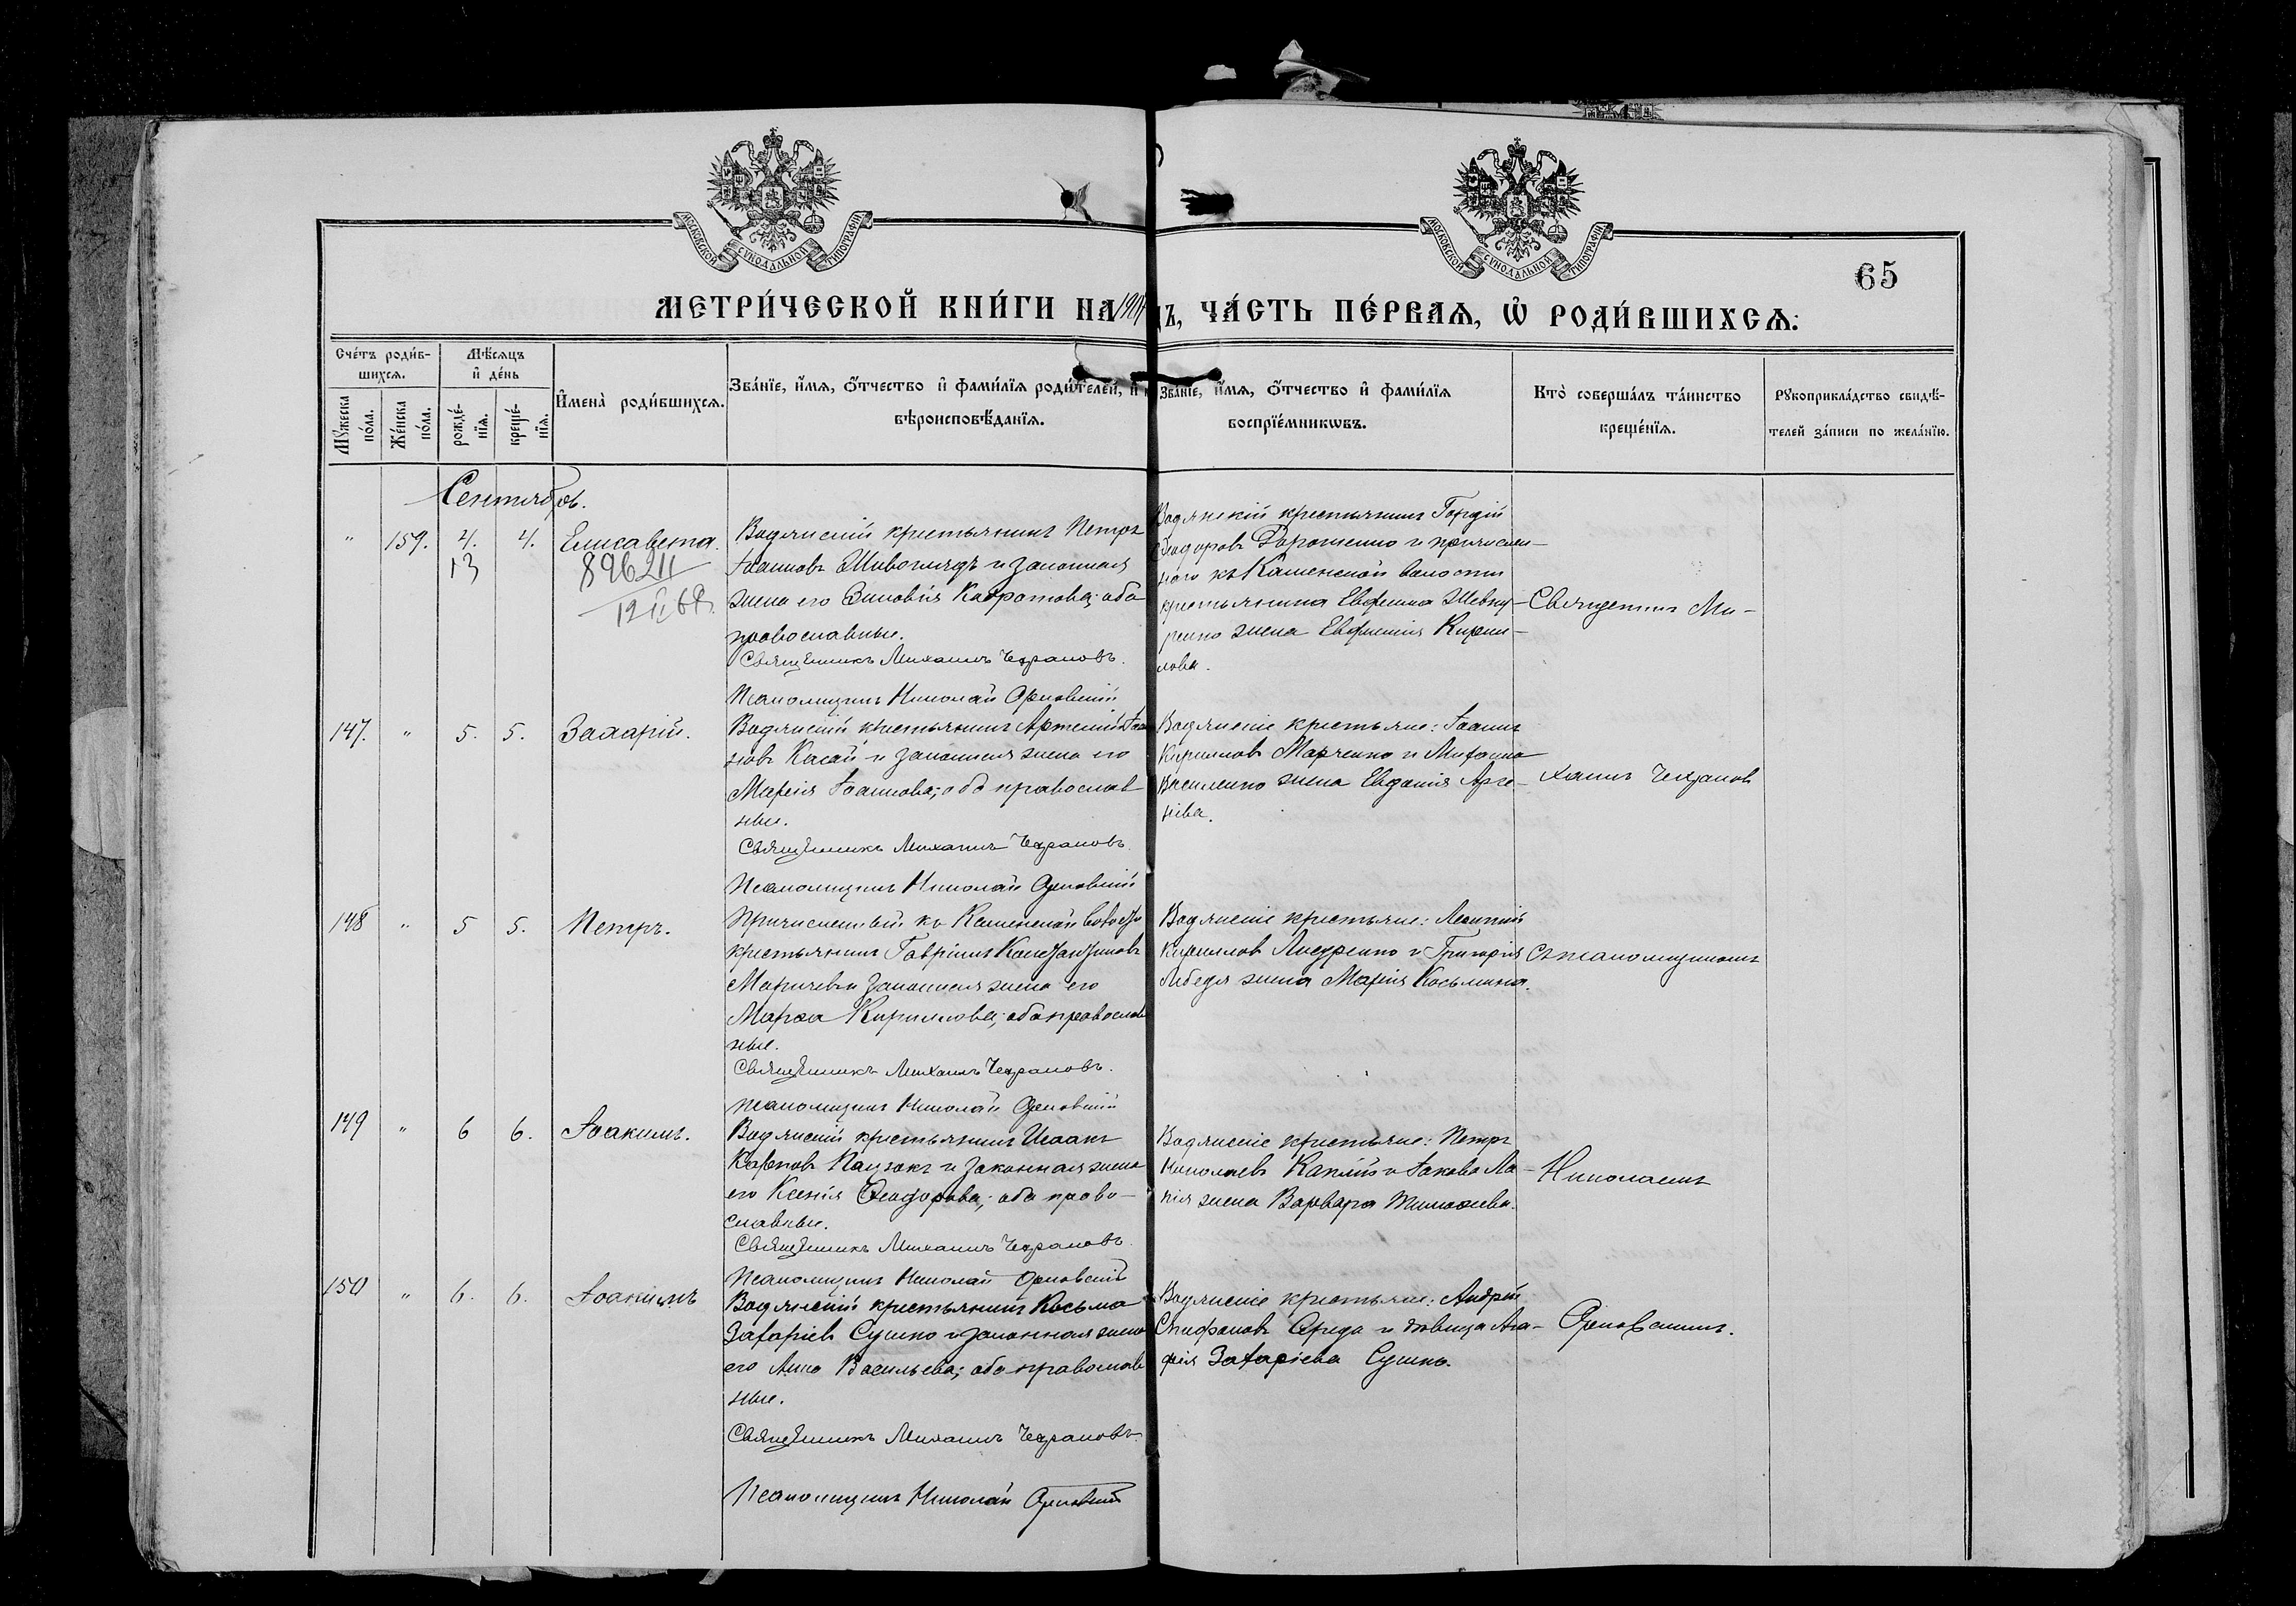 МОСКОВСКОЙ СѴНОДАЛЬНОЙ ТИПОГРАФІИ
МОСКОВСКОЙ СѴНОДАЛЬНОЙ ТИПОГРАФІИ
65
МЕТРИ́ЧЕСКОЙ КНИ́ГИ НА
ЧА́СТЬ ПЕ́РВАѦ, Ѡ҆ РОДИ́ВШИХСѦ:
Сче́тъ роди́в-
шихсѧ.
Мꙋ́жеска
по́ла.
Же́нска
по́ла.
Мѣ́сѧцъ
и҆ де́нь
рожде́-
нїѧ.
креще́-
нїѧ.
И҆мена̀ роди́вшихсѧ.
Зва́нїе, и҆́мѧ, ѻ҆́тчество и҆ фами́лїѧ роди́телей, и҆
вѣроисповѣ́данїѧ.
Зва́нїе, и҆́мѧ, ѻ҆́тчество и҆ фами́лїѧ
воспрїе́мникѡвъ.
Кто̀ соверша́лъ та́инство
креще́нїѧ.
Рꙋкоприкла́дство свидѣ́-
телей за́писи по жела́нїю.
Сентябрь.
" 159. 4. 4. Елисавета.
13
896211
Водянскій крестьянинъ Петръ
Іоанновъ и законная
жена его Зиновія оба
православные.
Священникъ Михаилъ Чехрановъ.
Псаломщикъ Николай Орловскій
Водянскій крестьянинъ Гордій
Ѳеодоровъ Дорошенко и причислен-
наго къ Каменской волости
крестьянина Евфима Шевку-
ренко жена Евфимія Кирил-
лова.
Священникъ Ми-
147. " 5. 5. Захарій.
Водянскій крестьянинъ Артемій Іоан
новъ Касай и законная жена его
Марія Іоаннова; оба православ
ные.
Священникъ Михаилъ Чехрановъ.
Псаломщикъ Николай Орловскій
Водянскіе крестьяне: Іоаннъ
Кирилловъ Марченко и Митрофана
Василенко жена Евдокія Арсе-
ніева.
хаилъ Чехрановъ
148 " 5 5. Петръ.
Причисленный къ Каменской волости
крестьянинъ Гавріилъ Константиновъ
законная жена его
Марѳа Кириллова; оба православ
ные.
Священникъ Михаилъ Чехрановъ.
Псаломщикъ Николай Орловскій
Водянскіе крестьяне: Леонтій
Кирилловъ Андреенко и Григорія
Лебедя жена Марія Косьмина.
съ псаломщикомъ
149 " 6 6. Іоакимъ.
Водянскій крестьянинъ Исаакъ
Карповъ Пацюкъ и законная жена
его Ксенія Ѳеодорова; оба право-
славные.
Священникъ Михаилъ Чехрановъ.
Псаломщикъ Николай Орловскій
Водянскіе крестьяне: Петръ
Николаевъ Каплій и Іакова Ла-
пія жена Варвара Тимоѳеева.
Николаемъ
150 " 6. 6. Іоакимъ
Водянскій крестьянинъ Косьма
Захаріевъ Сушко и законная жена
его Анна Васильева; оба православ
ные.
Священникъ Михаилъ Чехрановъ.
Псаломщикъ Николай Орловскій
Водянскіе крестьяне: Андрей
Стефановъ Середа и дѣвица Ага-
фія Захаріева Сушко.
Орловскимъ.